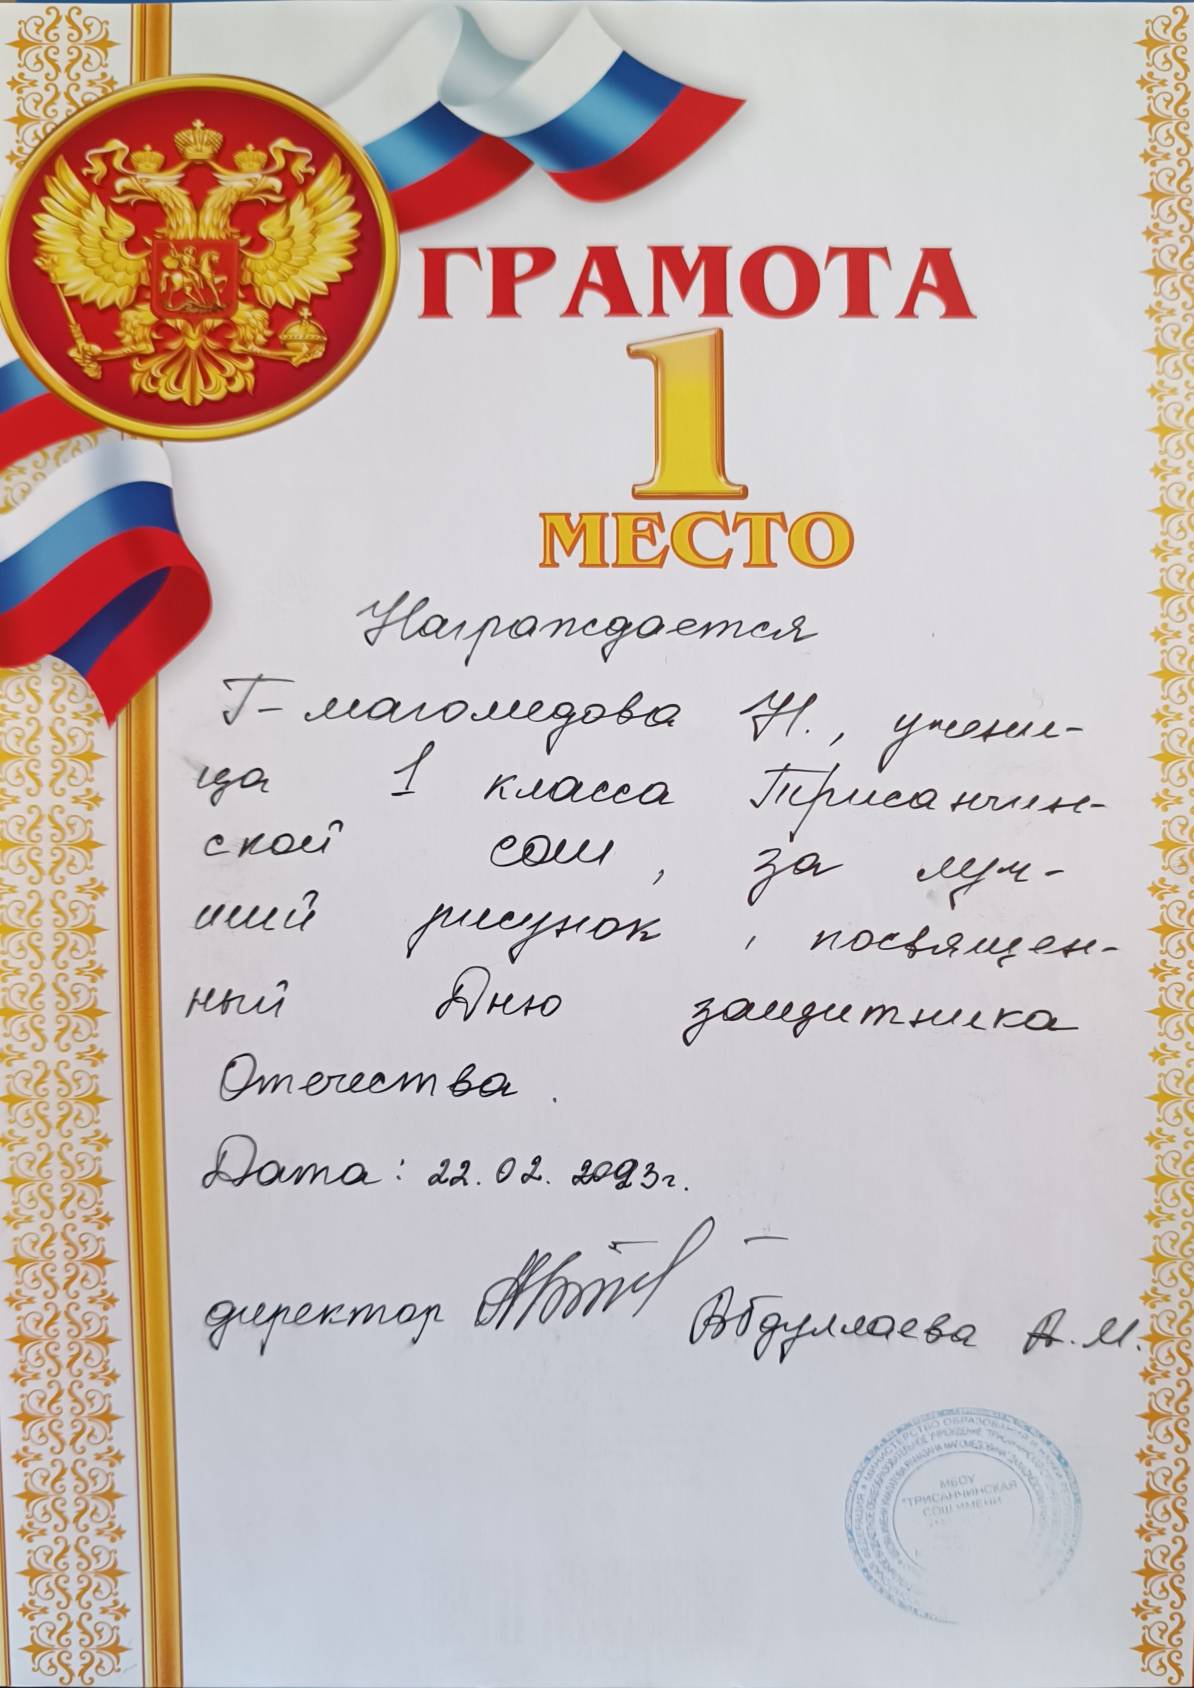 ГРАМОТА
1
МЕСТО
Награждается
Г-магомедова Н., учени-
ца 1 класса Трисанчин-
ской СОШ, за луч-
ший рисунок, посвящен-
ный Дню защитника
Отечества.
Дата: 22.02.2023г.
директор Абдуллаева А.М.
МБОУ
"ТРИСАНЧИНСКАЯ
СОШ ИМЕНИ